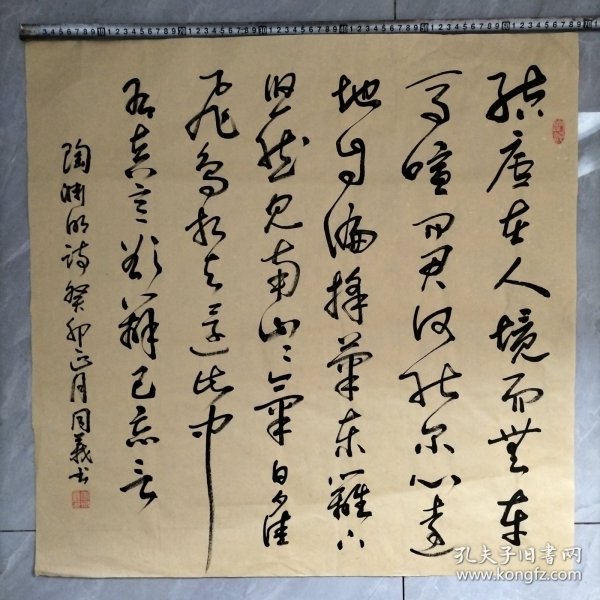 结庐在人境而无车
马喧问君何能尔心远
地自偏採菊东篱下
悠然见南山山气日夕佳
飞鸟相与还此中
有真意欲辨已忘言
陶渊明诗癸卯正月同义书
孔夫子旧书网
www.kongfz.com